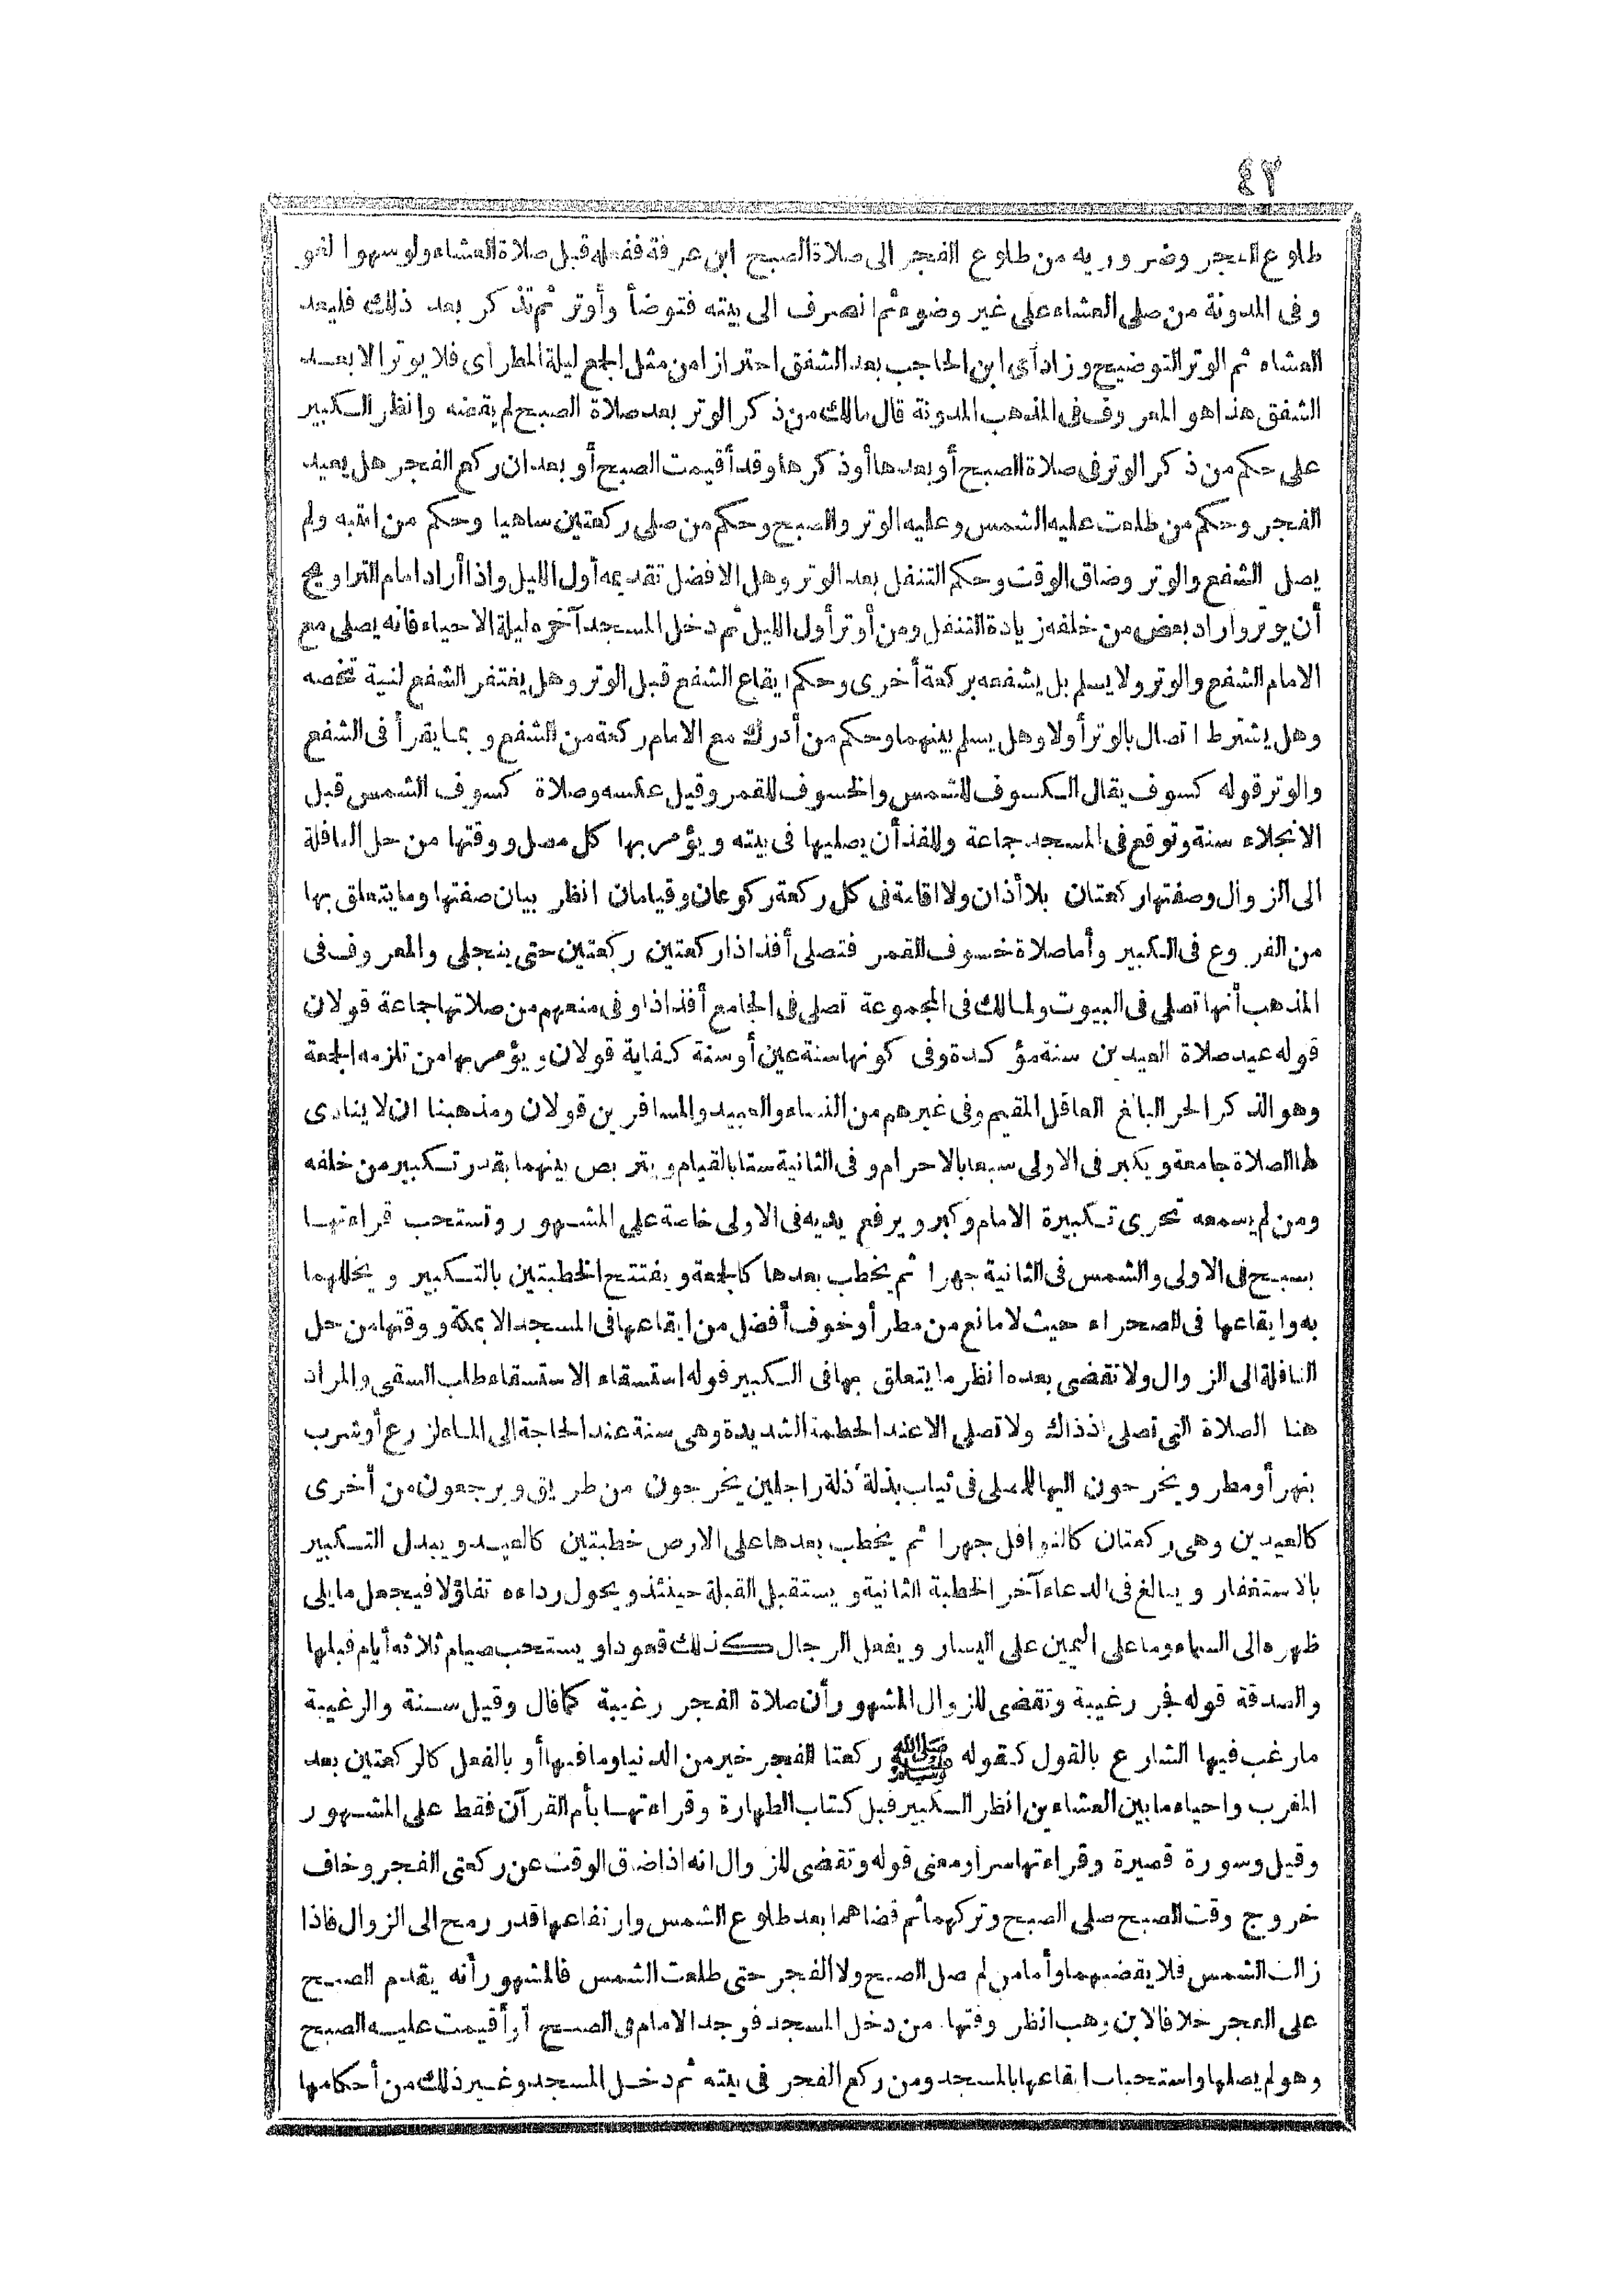 ٤٢
طلوع الفجر وضروريه من طلوع الفجر الى صلاة الصبح ابن عرفة ففعله قبل صلاة العشاء ولو سهوا لغو
وفى المدونة من صلى العشاء على غير وضوء ثم انصرف الى بيته فتوضأ وأوتر ثم تذكر بعد ذلك فليعد
العشاء ثم الوتر التوضيح وزاد أى ابن الحاجب بعد الشفق احترازا من مثل الجمع ليلة المطر أى فلا يوتر الا بعد
الشفق هذا هو المعروف فى المذهب المدونة قال مالك من ذكر الوتر بعد صلاة الصبح لم يقضه وانظر الكبير
على حكم من ذكر الوتر فى صلاة الصبح أو بعدها أو ذكرها وقد أقيمت الصبح أو بعد ان ركع الفجر هل يعيد
الفجر وحكم من طلعت عليه الشمس وعليه الوتر والصبح وحكم من صلى ركعتين ساهيا وحكم من انتبه ولم
يصل الشفع والوتر وضاق الوقت وحكم التنفل بعد الوتر وهل الافضل تقديمه أول الليل واذا أراد امام التراويح
أن يوتر وأراد بعض من خلفه زيادة التنفل ومن أوتر أول الليل ثم دخل المسجد آخره ليلة الاحياء فانه يصلى مع
الامام الشفع والوتر ولا يسلم بل يشفعه بركعة أخرى وحكم ايقاع الشفع قبل الوتر وهل يفتقر الشفع لنية تخصه
وهل يشترط اتصال بالوتر أولا وهل يسلم بينهما وحكم من أدرك مع الامام ركعة من الشفع وبما يقرأ فى الشفع
والوتر قوله كسوف يقال الكسوف للشمس والخسوف للقمر وقيل عكسه وصلاة كسوف الشمس قبل
الانجلاء سنة وتوقع فى المسجد جماعة وللفذ أن يصليها فى بيته ويؤمر بها كل مصل ووقتها من حل النافلة
الى الزوال وصفتها ركعتان بلا أذان ولا اقامة فى كل ركعة ركوعان وقيامان انظر بيان صفتها وما يتعلق بها
من الفروع فى الكبير وأما صلاة خسوف القمر فتصلى أفذاذا ركعتين ركعتين حتى ينجلى والمعروف فى
المذهب أنها تصلى فى البيوت ولمالك فى المجموعة تصلى فى الجامع أفذاذا وفى منعهم من صلاتها جماعة قولان
قوله عيد صلاة العيدين سنة مؤكدة وفى كونها سنة عين أو سنة كفاية قولان ويؤمر بها من تلزمه الجمعة
وهو الذكر الحر البالغ العاقل المقيم وفى غيرهم من النساء والعبيد والمسافرين قولان ومذهبنا ان لا ينادى
لها الصلاة جامعة ويكبر فى الاولى سبعا بالاحرام وفى الثانية ستا بالقيام ويتربص بينهما بقدر تكبير من خلفه
ومن لم يسمعه تحرى تكبيرة الامام وكبر ويرفع يديه فى الاولى خاصة على المشهور وتستحب قراءتها
بسبح فى الاولى والشمس فى الثانية جهرا ثم يخطب بعدها كالجمعة ويفتتح الخطبتين بالتكبير ويخللهما
به وايقاعها فى الصحراء حيث لا مانع من مطر أو خوف أفضل من ايقاعها فى المسجد الا بمكة ووقتها من حل
النافلة الى الزوال ولا تقضى بعده انظر ما يتعلق بها فى الكبير قوله استسقاء الاستسقاء طلب السقى والمراد
هنا الصلاة التى تصلى اذ ذاك ولا تصلى الا عند الحطمة الشديدة وهى سنة عند الحاجة الى الماء لزرع أو شرب
بنهر أو مطر ويخرجون اليها للمصلى فى ثياب بذلة أذلة راجلين يخرجون من طريق ويرجعون من أخرى
كالعيدين وهى ركعتان كالنوافل جهرا ثم يخطب بعدها على الارض خطبتين كالعيد ويبدل التكبير
بالاستغفار ويبالغ فى الدعاء آخر الخطبة الثانية ويستقبل القبلة حينئذ ويحول رداءه تفاؤلا فيجعل ما يلى
ظهره الى السماء وما على اليمين على اليسار ويفعل الرجال كذلك قعودا ويستحب صيام ثلاثة أيام قبلها
والصدقة قوله فجر رغيبة وتقضى للزوال المشهور أن صلاة الفجر رغيبة كما قال وقيل سنة والرغيبة
ما رغب فيها الشارع بالقول كقوله ﷺ ركعتا الفجر خير من الدنيا وما فيها أو بالفعل كالركعتين بعد
المغرب واحياء ما بين العشاءين انظر الكبير قبل كتاب الطهارة وقراءتها بأم القرآن فقط على المشهور
وقيل وسورة قصيرة وقراءتها سرا ومعنى قوله وتقضى للزوال انه اذا ضاق الوقت عن ركعتى الفجر وخاف
خروج وقت الصبح صلى الصبح وتركهما ثم قضاهما بعد طلوع الشمس وارتفاعها قدر رمح الى الزوال فاذا
زالت الشمس فلا يقضيهما وأما من لم صل الصبح ولا الفجر حتى طلعت الشمس فالمشهور أنه يقدم الصبح
على الفجر خلافا لابن وهب انظر وقتها من دخل المسجد فوجد الامام فى الصبح أو أقيمت عليه الصبح
وهو لم يصلها واستحباب ايقاعها بالمسجد ومن ركع الفجر فى بيته ثم دخل المسجد وغير ذلك من أحكامها